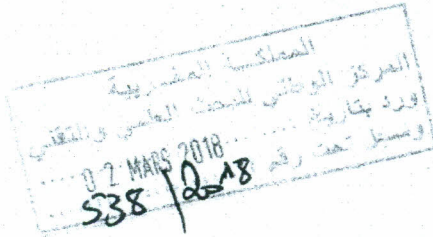 المملكة المغربية
المركز الوطني للبحث العلمي والتقني
ورد بتاريخ
02 MARS 2018
وسجل تحت رقم
538/2018